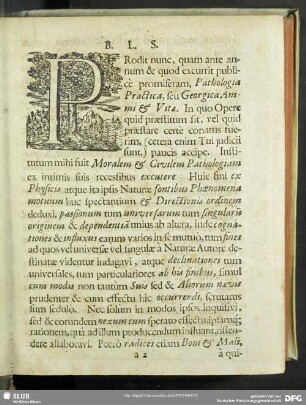 B. L. S.
PRodit nunc, quam ante an-
num & quod excurrit publi-
cè promiseram, Pathologia
Practica, seu Georgica Ani-
mi & Vitæ. In quo Opere
quid præstitum sit, vel quid
præstare certe conatus fue-
rim, (cetera enim Tui judicii
sunt,) paucis accipe. Insti-
tutum mihi fuit Moralem & Civilem Pathologiam
ex intimis suis recessibus excutere. Huic fini ex
Physicis atque ita ipsis Naturæ fontibus Phænomena
motuum huc spectantium & Directionis ordinem
deduxi, passionum tum universarum tum singularis
originem & dependentiã unius ab altera, inde cogna-
tiones & influxus earum varios in se mutuò, tum fines
ad quos vel universæ vel singulæ à Naturæ Autore de-
stinatæ videntur indagavi, atque declinationes tum
universales, tum particulariores ab his finibus, simul
cum modis non tantum Suis sed & Aliorum nævis
prudenter & cum effectu hic occurrendi, scrutatus
sum sedulò. Nec solum in modos ipsos inquisivi,
sed & eorundem nexum cum sperato effectu ipsamq;
rationem, quâ ad illum producendum influant, osten-
dere allaboravi. Porrò radices etiam Boni & Mali,
a 2 à qui-
SLUB
Wir führen Wissen.
gefördert von der
Deutschen Forschungsgemeinschaft